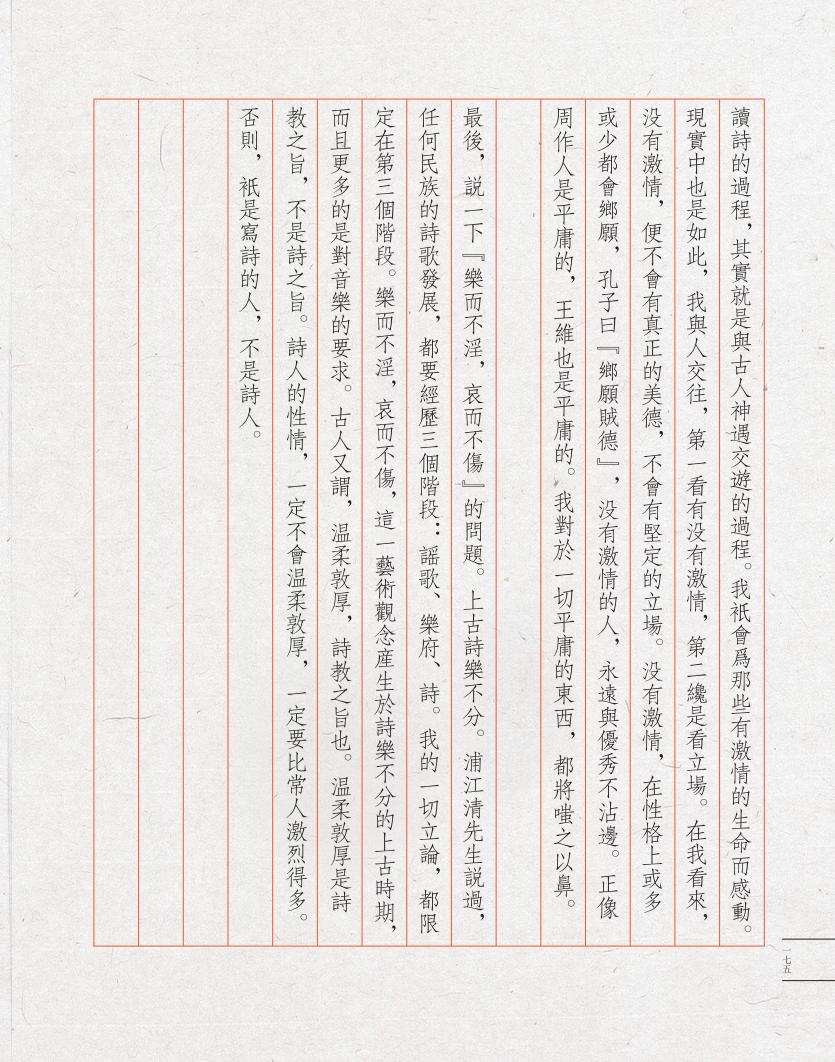 讀詩的過程，其實就是與古人神遇交遊的過程。我衹會爲那些有激情的生命而感動。
現實中也是如此，我與人交往，第一看有没有激情，第二纔是看立場。在我看來，
没有激情，便不會有真正的美德，不會有堅定的立場。没有激情，在性格上或多
或少都會鄉願，孔子曰『鄉願賊德』，没有激情的人，永遠與優秀不沾邊。正像
周作人是平庸的，王維也是平庸的。我對於一切平庸的東西，都將嗤之以鼻。
最後，説一下『樂而不淫，哀而不傷』的問題。上古詩樂不分。浦江清先生説過，
任何民族的詩歌發展，都要經歷三個階段：謡歌、樂府、詩。我的一切立論，都限
定在第三個階段。樂而不淫，哀而不傷，這一藝術觀念産生於詩樂不分的上古時期，
而且更多的是對音樂的要求。古人又謂，温柔敦厚，詩教之旨也。温柔敦厚是詩
教之旨，不是詩之旨。詩人的性情，一定不會温柔敦厚，一定要比常人激烈得多。
否則，衹是寫詩的人，不是詩人。
一七五